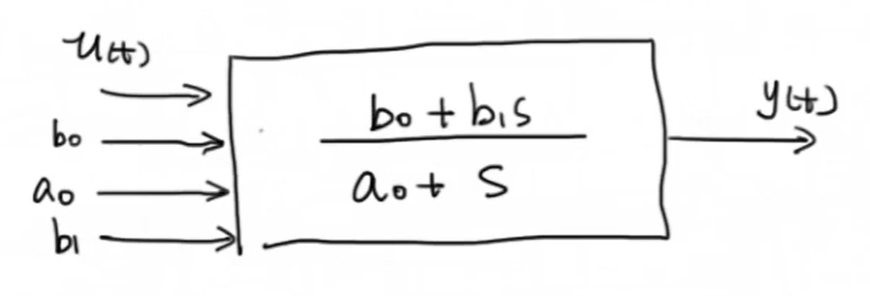 u(t)
b₀
a₀
b₁
b₀ + b₁s
a₀ + s
y(t)